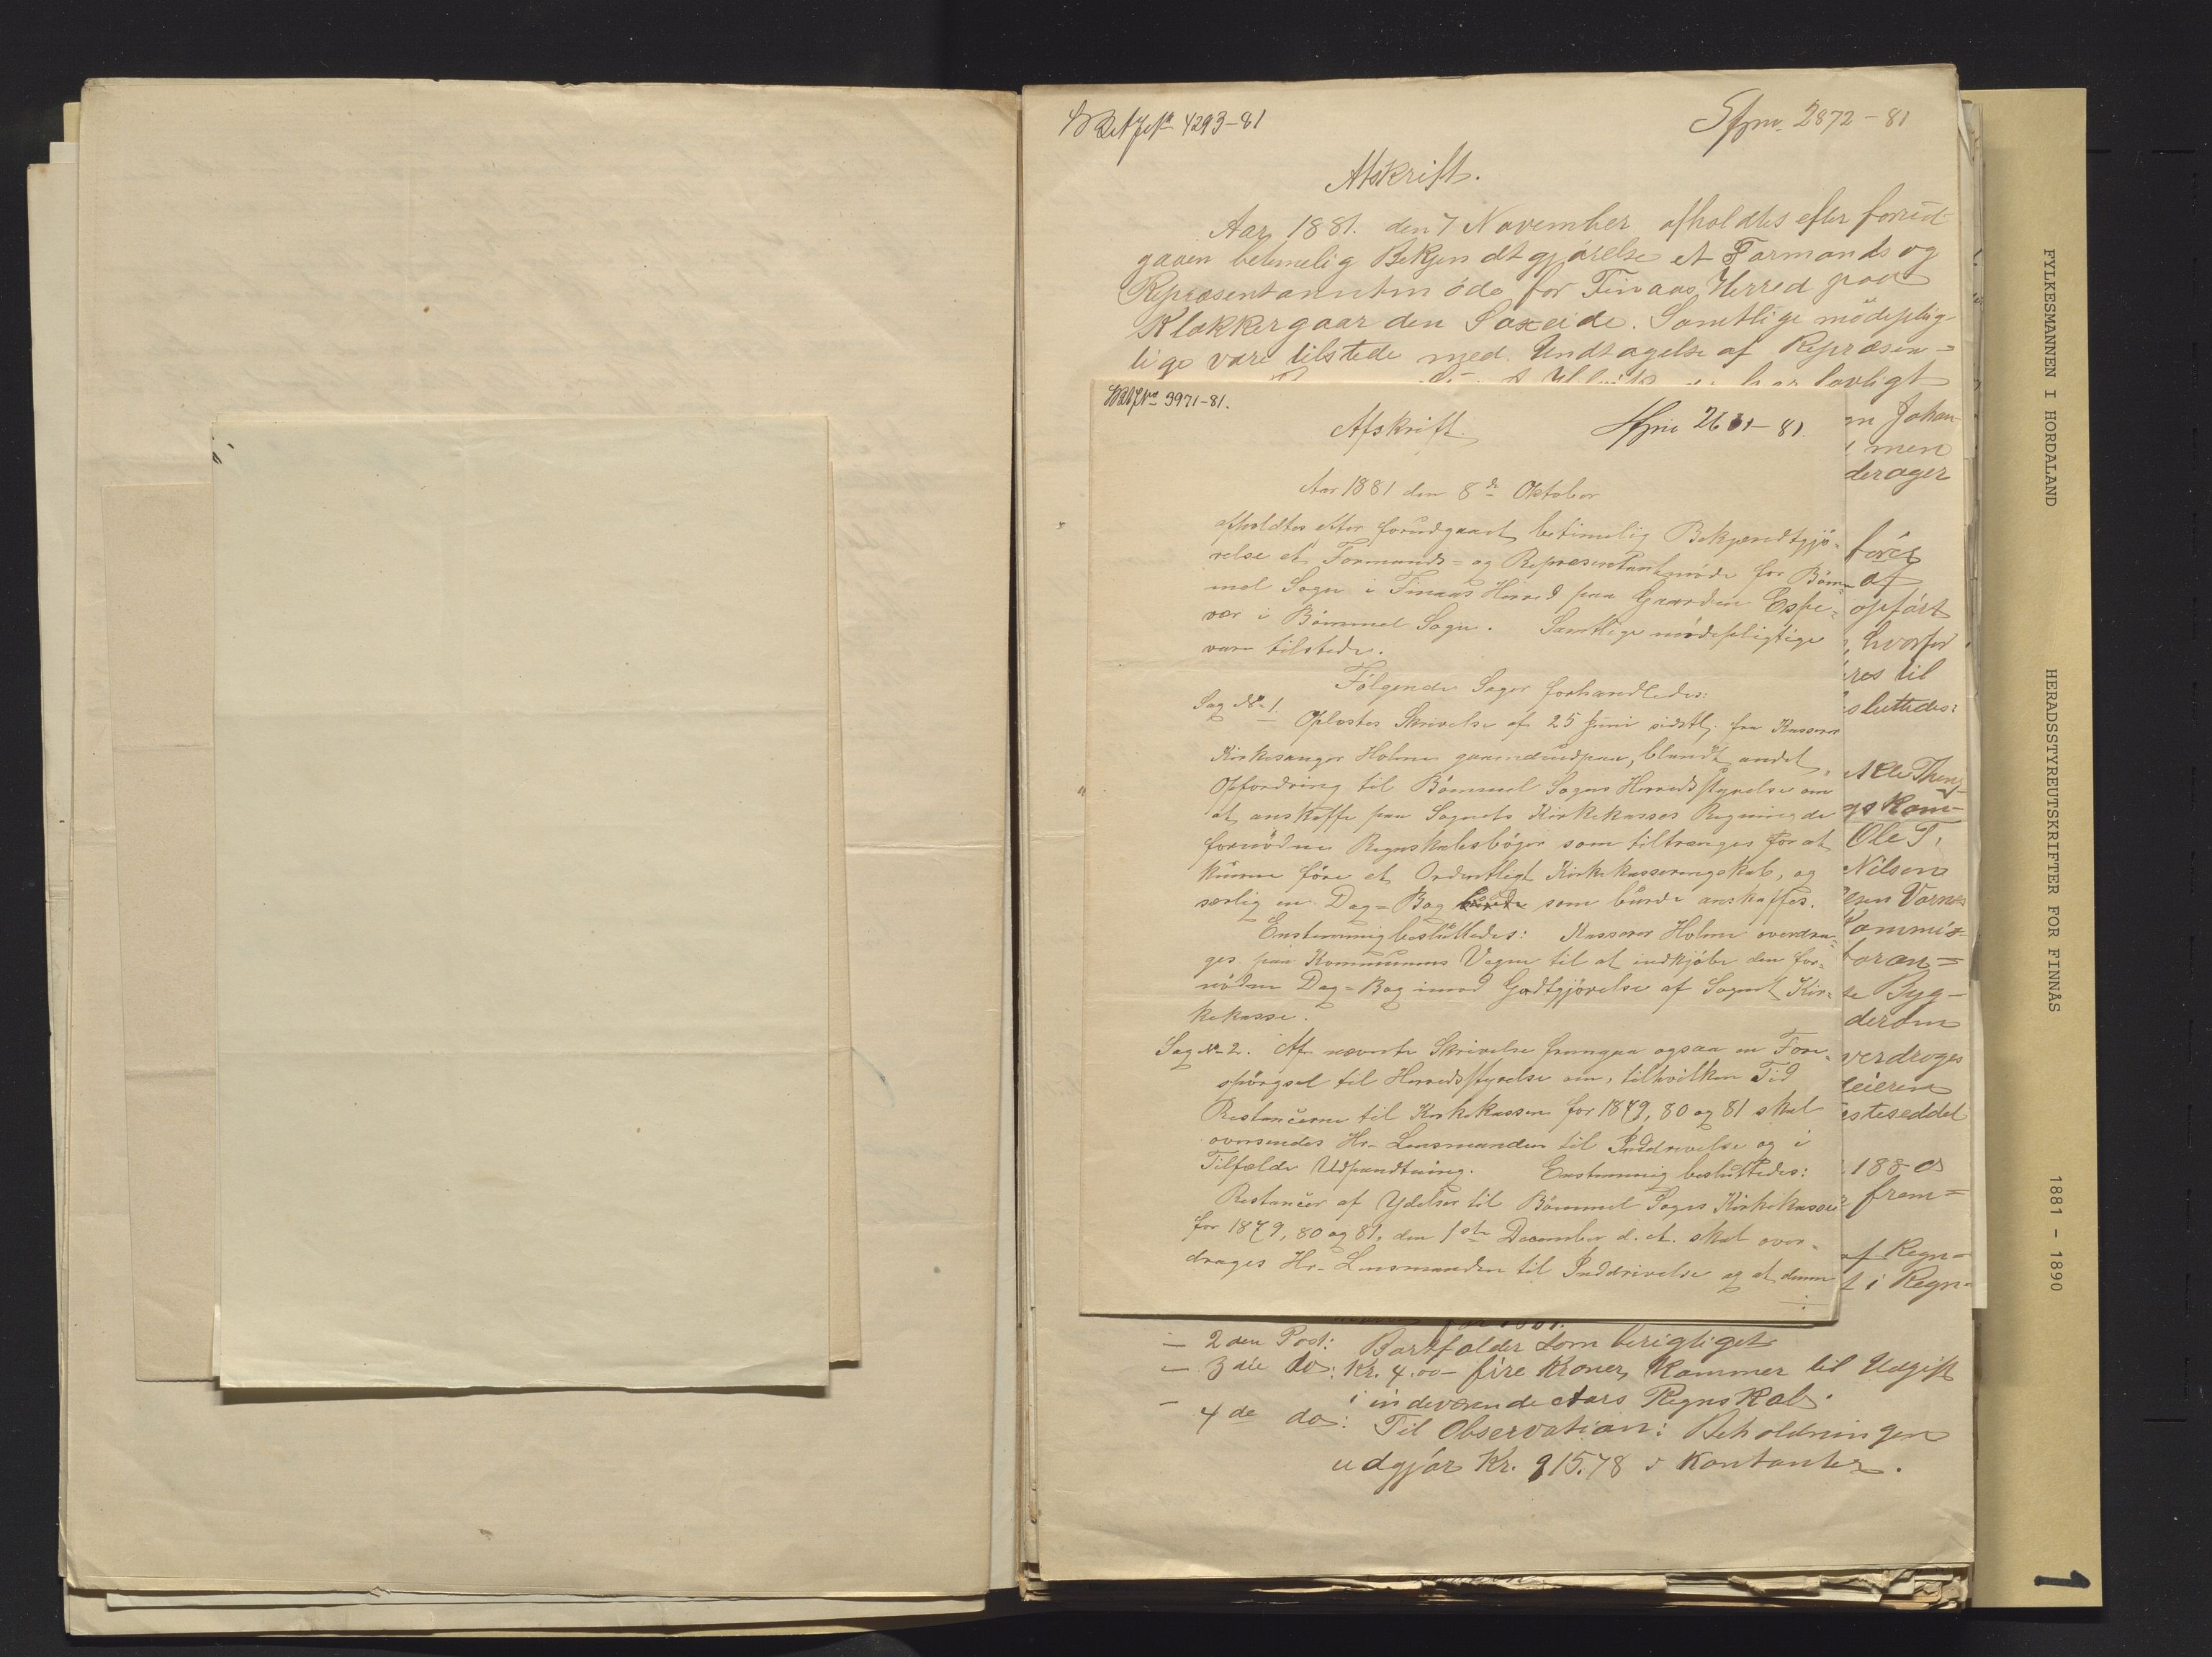 4293-81
2872-81
Afskrift.
Aar 1881. den 7 November afholdtes efter forud-
gaaen betimelig Bekjendtgjørelse et Formands og
Repræsentantmöde for Finaas Herred paa
Klokkergaarden Saxeide. Samtlige mödeplig-
tige vare tilstede med Undtagelse af Repræsen=
lovligt
3971-81.
Afskrift.
26 1-81.
Aar 1881 den 8de Oktober
afholdtes efter forudgaaet betimelig Bekjendtgjö-
relse et Formands= og Representantmöde for Böm-
mel Sogn i Finaas Herred paa Gaarden Espe-
vær i Bömmel Sogn. Samtlige mödepligtige
vare tilstede.
Fölgende Sager forhandledes:
Sag No 1. Oplæstes Skrivelse af 25 Juni sidstl. fra Kasserer
Kirkesanger Holme gaaendeudpaa, blandt andet,
Opfordring til Bömmel Sogns Herredsstyrelse om
at anskaffe paa Sognets Kirkekasses Regning de
fornödne Regnskabsböger som tiltrænges for at
kunne före et Ordentligt Kirkekasseregnskab, og
særlig en Dag=Bog som burde anskaffes.
Enstemmig besluttedes: Kasserer Holme overdra-
ges paa Kommunens Vegne til at indkjöbe den for-
nödne Dag=Bog imod Godtgjörelse af Sognets Kir=
kekasse.
Sag No 2. Af nævnte Skrivelse fremgaar ogsaa en Fore-
spörgsel til Herredsstyrelse om, tilhvilken Tid
Restancerne til Kirkekassen for 1879, 80 og 81 skal
oversendes Hr. Lensmanden til Inddrivelse og i
Tilfælde Udpandtning. Enstemmig besluttedes:
Restancer af Ydelser til Bömmel Sogns Kirkekasse
for 1879, 80 og 81, den 1ste December d. A. skal over-
drages Hr. Lensmanden til Inddrivelse og at denne
m Johan-
men
derager
förer
af
opfört
, hvorfor
res til
sluttedes:
gs Kom-
Ole T.
Nilsen
Kommis-
foran=
te Byg-
derom
verdroges
leieren
esteseddel
1880
frem=
af Regn=
t i Regn=
— 2den Post: Bortfalder som berigtiget
— 3die do: Kr. 4.00 - fire Kroner, Kommer til Udgift
i indeværende Aars Regnskab.
— 4de do: Til Observation: Beholdningen
udgjör Kr. 915.78 i Kontanter.
FYLKESMANNEN I HORDALAND
HERADSSTYREUTSKRIFTER FOR FINNÅS
1881 - 1890
1